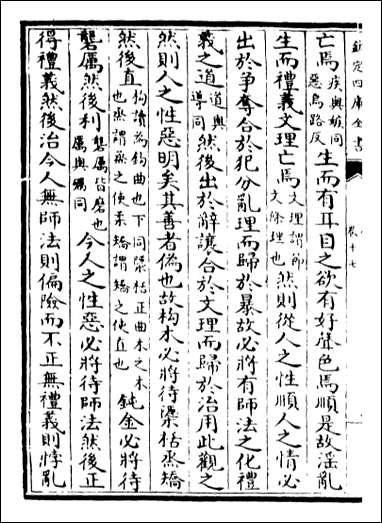 欽定四庫全書
卷十七
亡焉疾與嫉同惡烏路反生而有耳目之欲有好聲色焉順是故淫亂
生而禮義文理亡焉文理謂節文條理也然則從人之性順人之情必
出於爭奪合於犯分亂理而歸於暴故必將有師法之化禮
義之道道與導同然後出於辭讓合於文理而歸於治用此觀之
然則人之性惡明矣其善者偽也故枸木必將待檃栝烝矯
然後直枸讀為鈎曲也下同檃栝正曲木之木也烝謂烝之使柔矯謂矯之使直也鈍金必將待
礱厲然後利礱厲皆磨也厲與礪同今人之性惡必將待師法然後正
得禮義然後治今人無師法則偏險而不正無禮義則悖亂